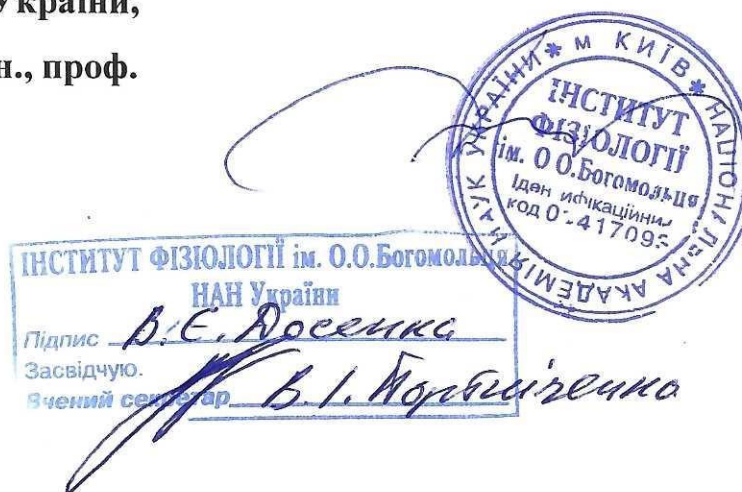 України,
н., проф.
* м КИЇВ * НАЦІОНАЛЬНА АКАДЕМІЯ НАУК УКРАЇНИ
ІНСТИТУТ
ФІЗІОЛОГІЇ
ім. О О.Богомольця
код
ІНСТИТУТ ФІЗІОЛОГІЇ ім. О.О.Богомольця
НАН України
Підпис В.Є. Досенка
Засвідчую.
Вчений секретар В.І. Портніченко